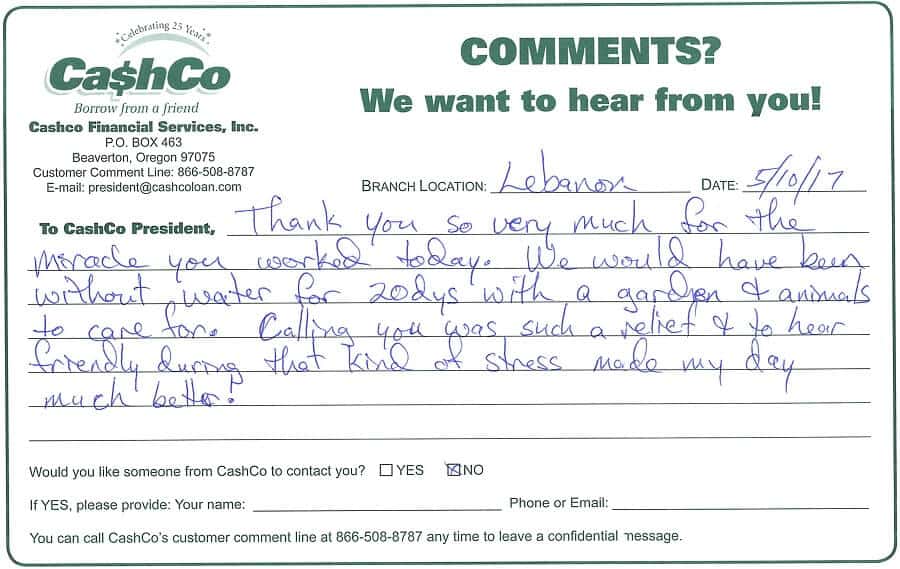 *Celebrating 25 Years*
Ca$hCo
Borrow from a friend
Cashco Financial Services, Inc.
P.O. BOX 463
Beaverton, Oregon 97075
Customer Comment Line: 866-508-8787
E-mail: president@cashcoloan.com
COMMENTS?
We want to hear from you!
BRANCH LOCATION: Lebanon DATE: 5/10/17
To CashCo President, Thank you so very much for the
miracle you worked today. We would have been
without water for 20dys with a garden & animals
to care for. Calling you was such a relief & to hear
friendly during that kind of stress made my day
much better!
Would you like someone from CashCo to contact you? ☐ YES ☒ NO
If YES, please provide: Your name: Phone or Email:
You can call CashCo's customer comment line at 866-508-8787 any time to leave a confidential message.